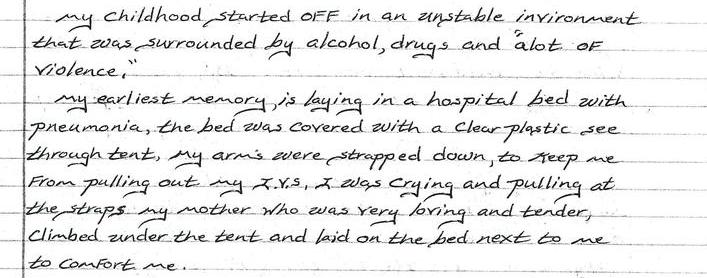 my childhood, started OFF in an unstable invironment
that was, surrounded by alcohol, drugs and "alot OF
violence."
my earliest memory, is laying in a hospital bed with
pneumonia, the bed was covered with a clear plastic see
through tent, my arm's were strapped down, to keep me
From pulling out my I.V.s, I was crying and pulling at
the straps my mother who was very loving and tender,
climbed under the tent and laid on the bed next to me
to comfort me.